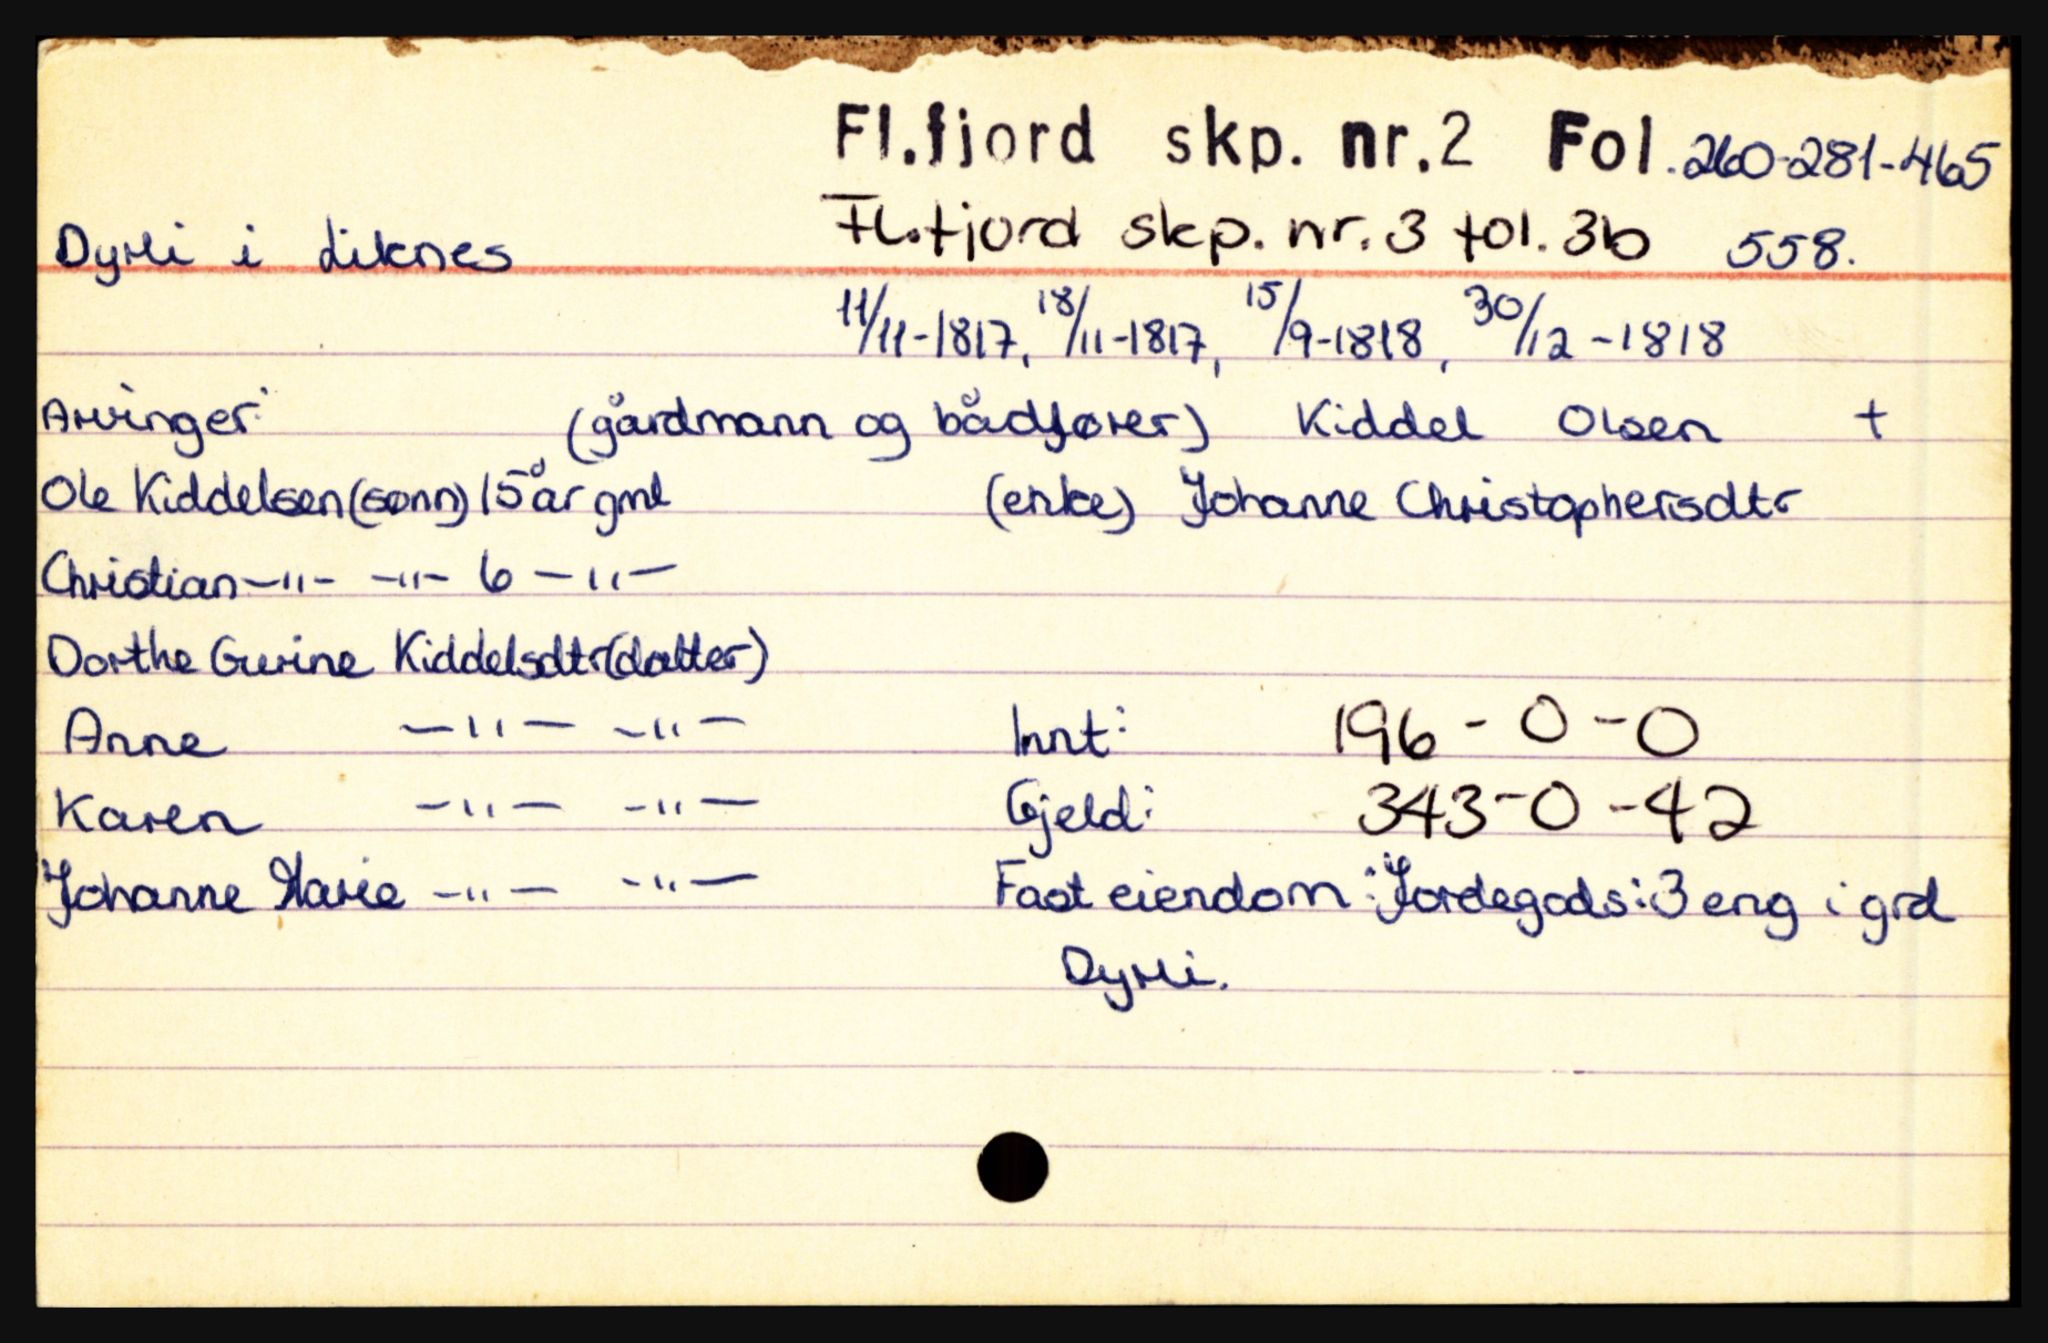 Fl.fjord skp. nr.2 Fol. 260-281-465
Fl.fjord skp. nr. 3 fol. 3b 558.
Dyrli i Liknes
11/11-1817, 18/11-1817, 15/9-1818, 30/12-1818
Arvinger: (gårdmann og bådfører) Kiddel Olsen +
Ole Kiddelsen (sønn) 15 år gml (enke) Johanne Christophersdtr
Christian -"- -"- 6 -"-
Dorthe Gurine Kiddelsdtr (datter)
Anne -"- -"- Innt: 196-0-0
Karen -"- -"- Gjeld: 343-0-42
Johanne Marie -"- -"- Fast eiendom: Jordegods: 3 eng i grd
Dyrli.